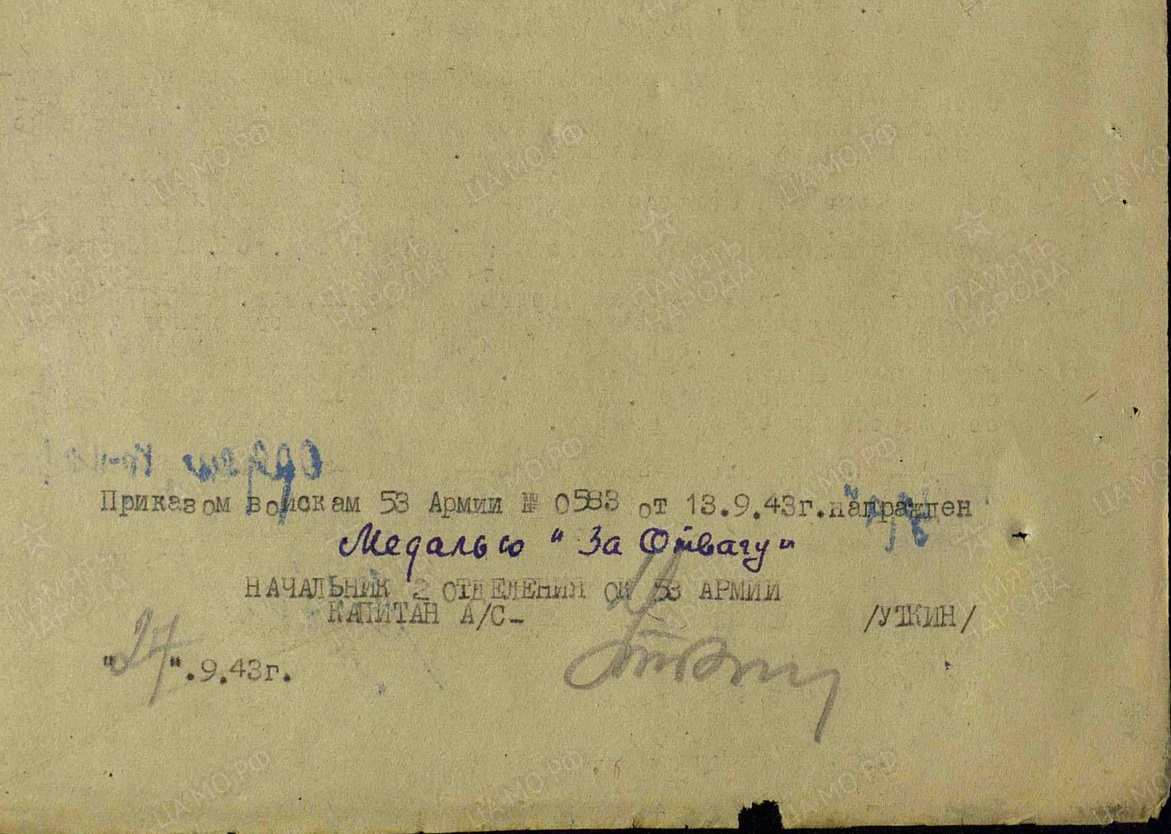 Приказом войскам 53 Армии № 0583 от 13.9.43г.награжден
Медалью "За Отвагу"
НАЧАЛЬНИК 2 ОТДЕЛЕНИЯ ОК 53 АРМИИ
КАПИТАН А/С-
/УТКИН/
"27".9.43г.